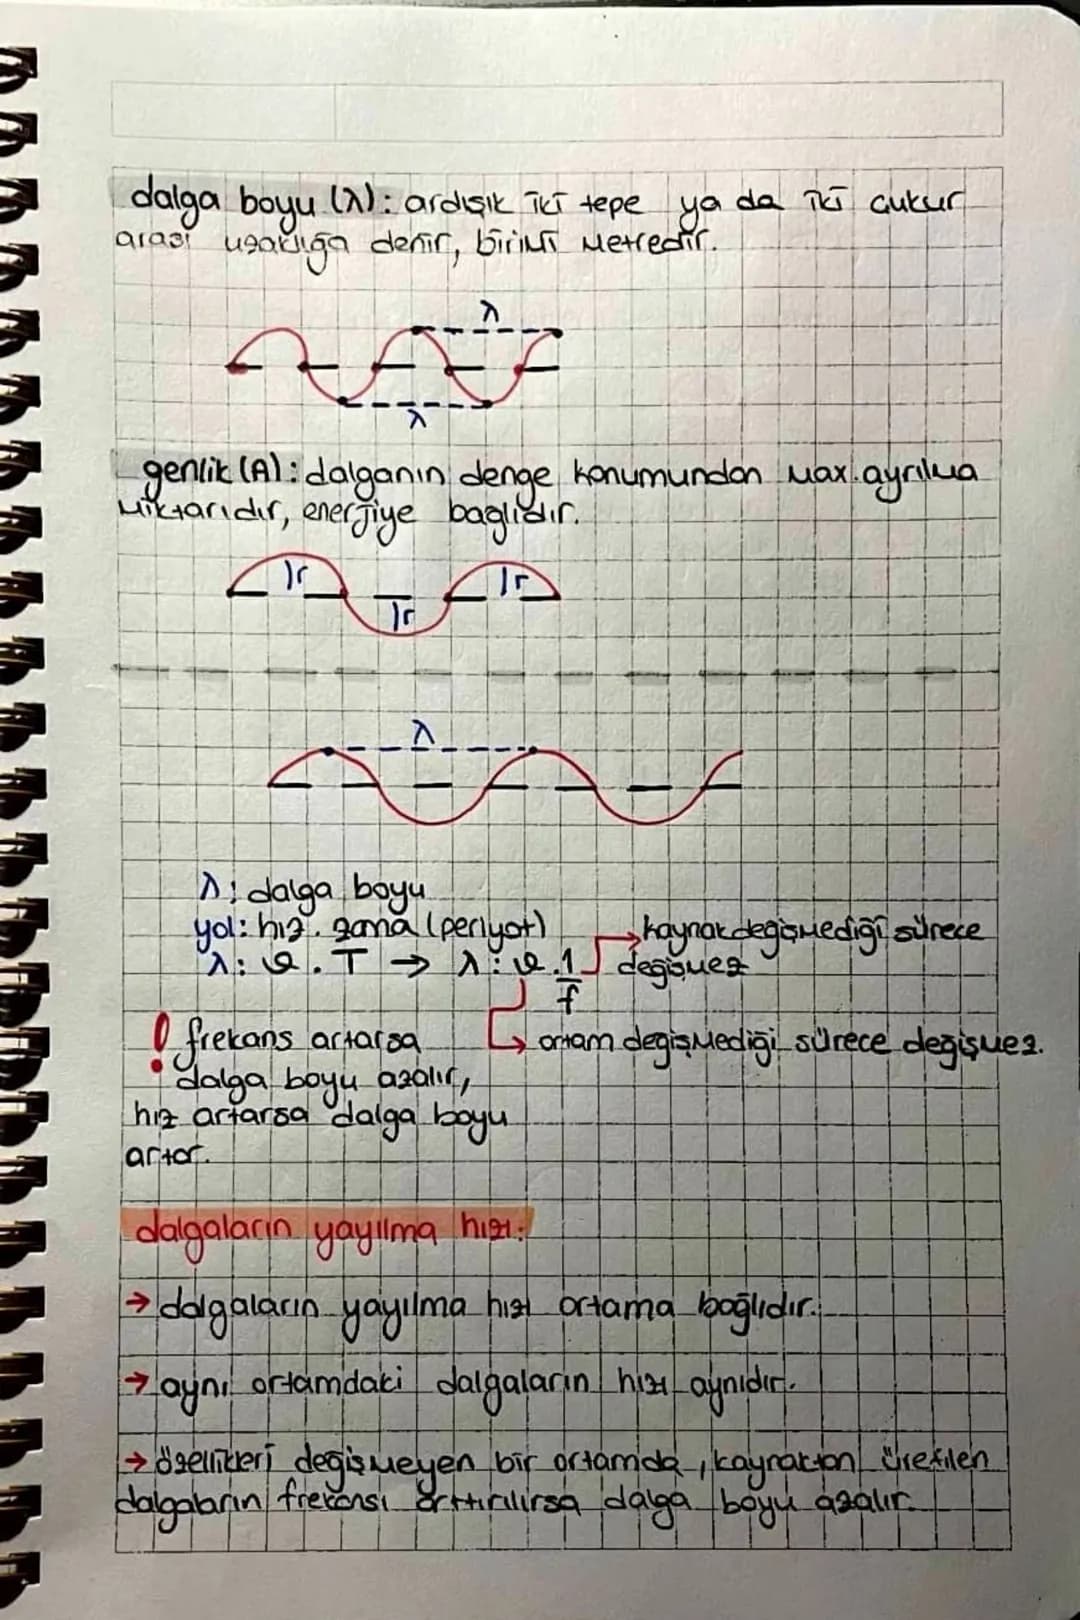 dalga boyu (λ): ardışık iki tepe ya da iki çukur
arası uzaklığa denir, birimi metredir.
λ
λ
genlik (A): dalganın denge konumundan max. ayrılma
miktarıdır, enerjiye bağlıdır.
r
r
r
λ
λ: dalga boyu
yol: hız. zaman (periyot)
kaynak değişmediği sürece
λ: v . T → λ: v . 1/f
değişmez
ortam değişmediği sürece değişmez.
! frekans artarsa
dalga boyu azalır,
hız artarsa dalga boyu
artar.
dalgaların yayılma hızı:
→ dalgaların yayılma hızı ortama bağlıdır.
→ aynı ortamdaki dalgaların hızı aynıdır.
→ özellikleri değişmeyen bir ortamda, kaynaktan üretilen
dalgaların frekansı arttırılırsa dalga boyu azalır.